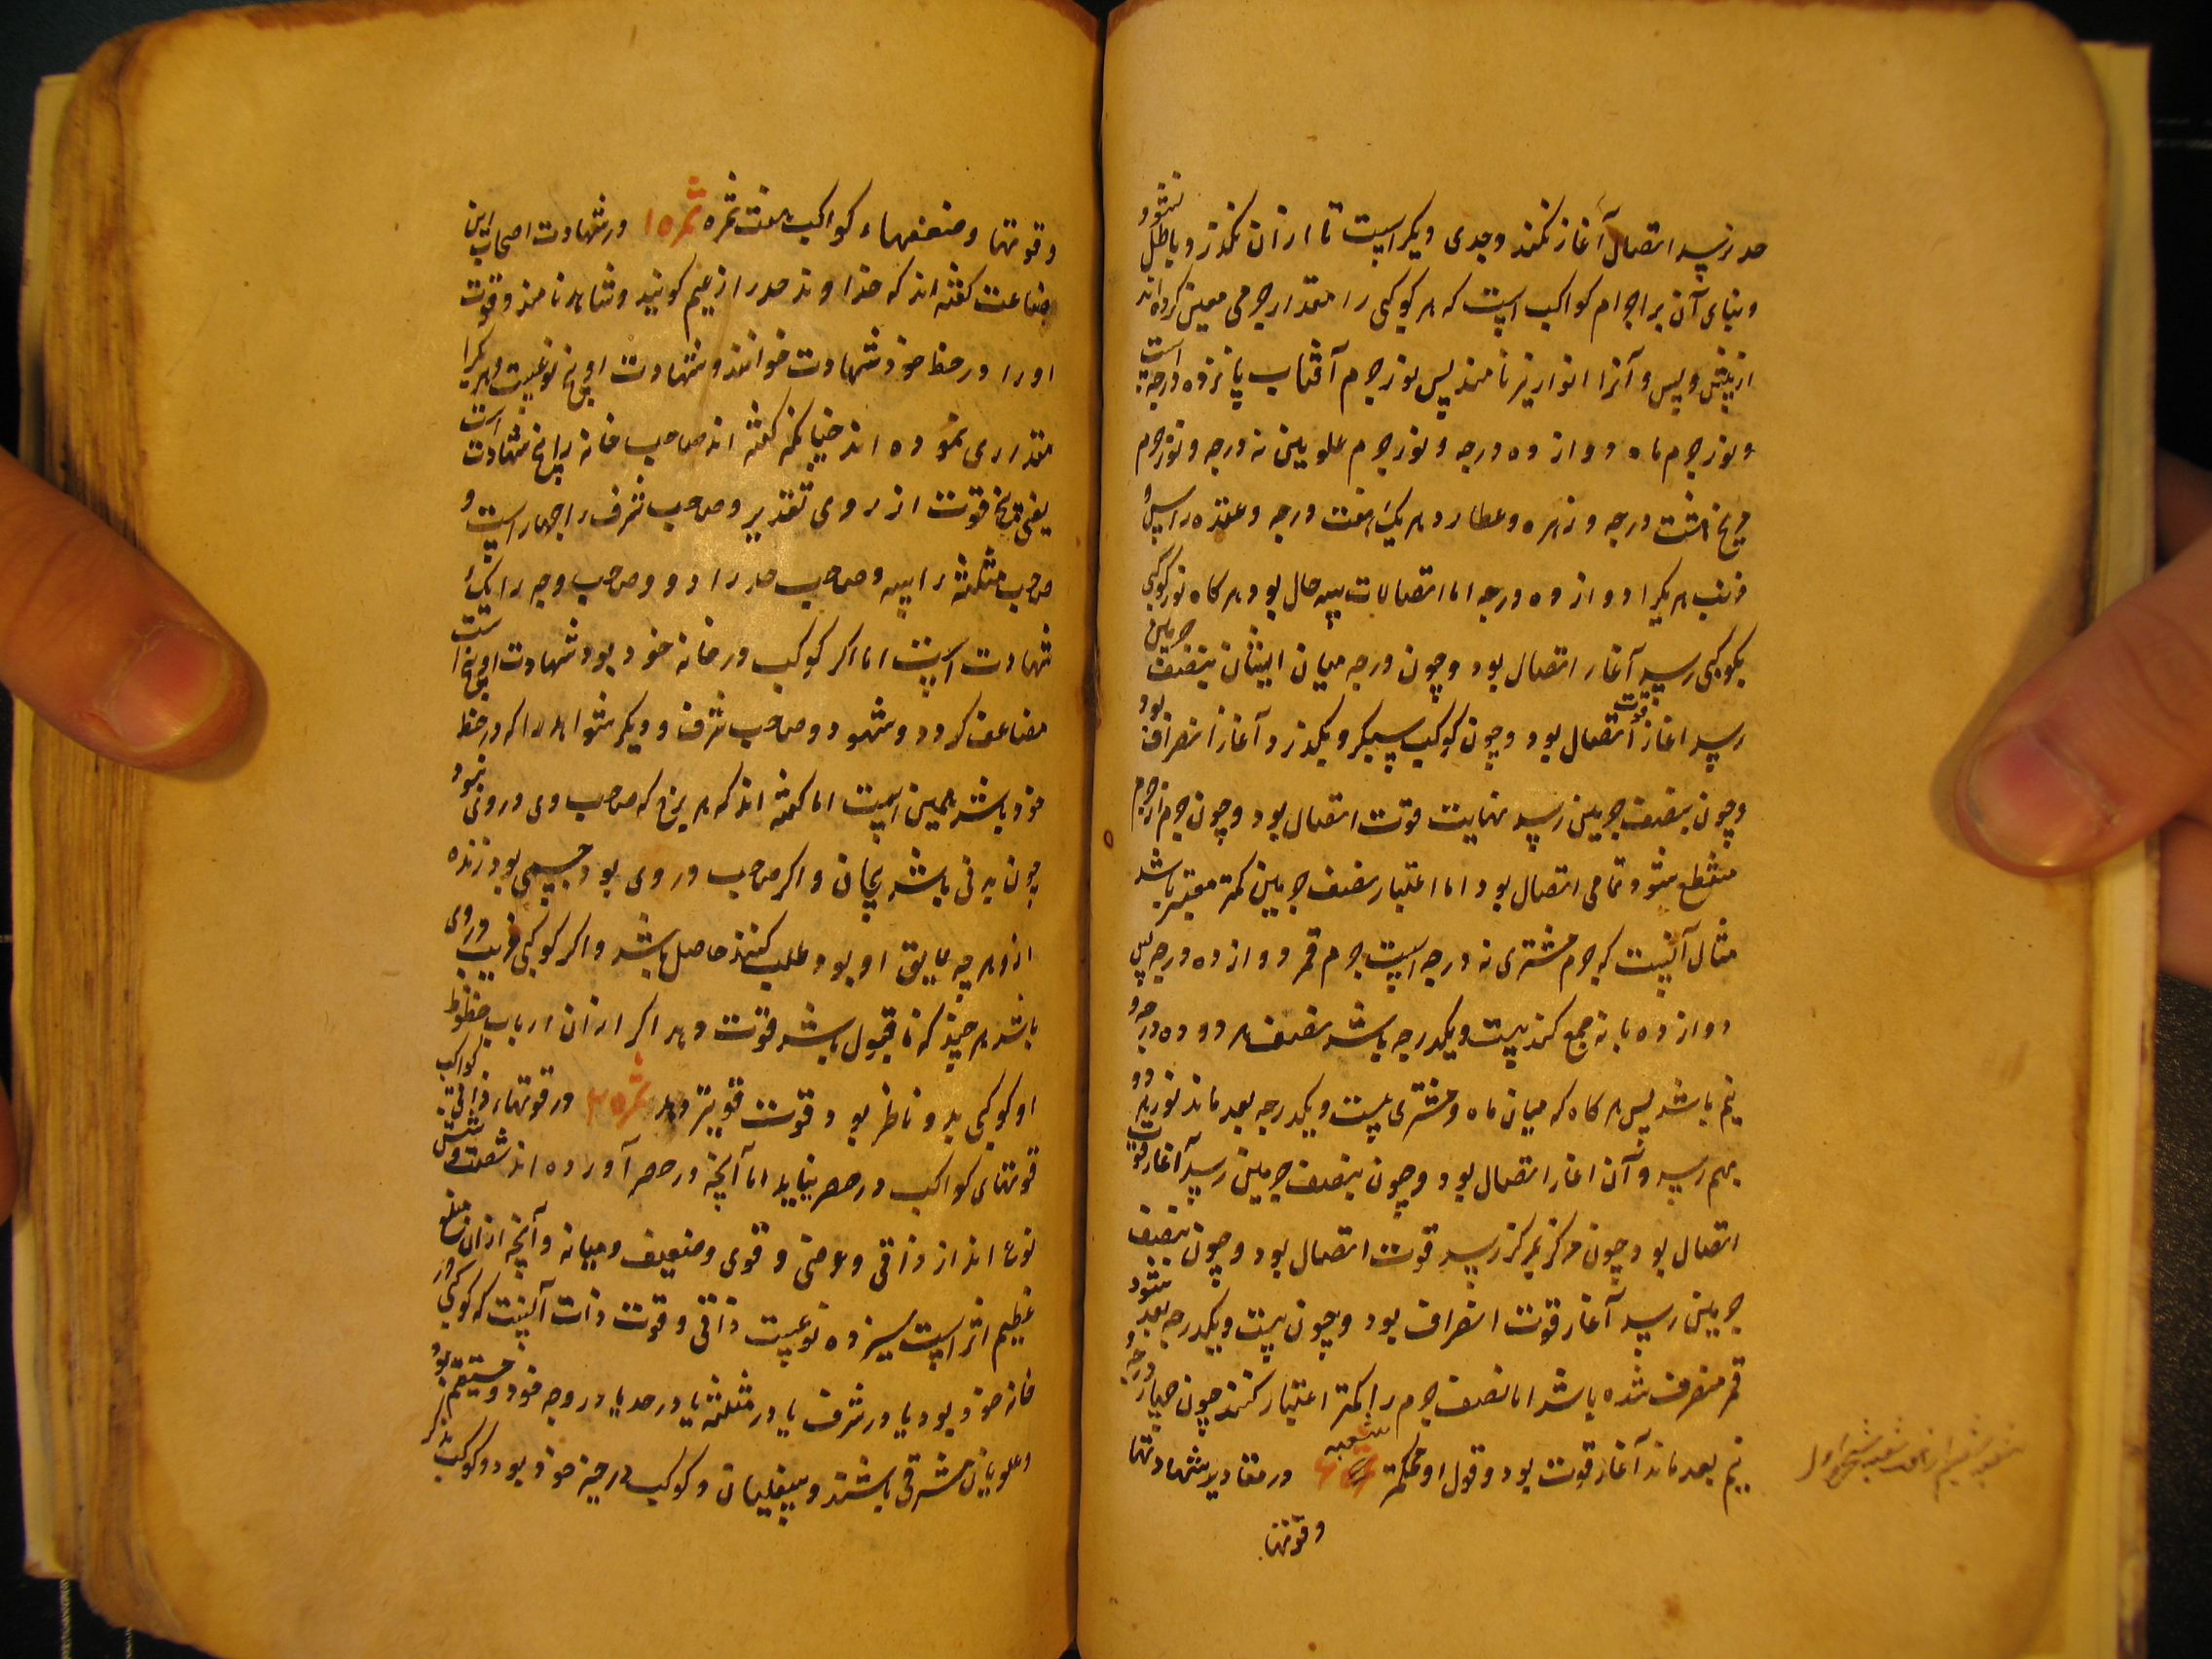 حد نرسد اتصال آغاز نکند وحدی دیکر است تا از آن نکذرد باطل نشود
وبنای آن بر اجرام کواکب است که هر کوکبی را مقدار جرمی معین کرده اند
از پیش و پس و آنرا انوار نیز نامند پس نور جرم آفتاب پانزده درجه است
ونور جرم ماه دوازده درجه ونور جرم علویین نه درجه ونور جرم
مریخ هشت درجه وزهره وعطارد هریک هفت درجه وعقده راس و
ذنب هر یکرا دوازده درجه اما اتصالات بسه حال بود هرکاه نور کوکبی
بکوکبی رسد آغاز اتصال بود وچون درجه میان ایشان بنصف جرمین
رسد اغاز قوت اتصال بود وچون کوکب سبکرو بکذرد آغاز انصراف بود
وچون بنصف جرمین رسد نهایت قوت اتصال بود وچون جرم از جرم
منقطع شود تمامی اتصال بود اما اعتبار نصف جرمین کمتر معتبر باشد
مثال آنست که جرم مشتری نه درجه است جرم قمر دوازده درجه پس
دوازده با نه جمع کنند بیست ویکدرجه باشد نصف هر دو ده درجه و
نیم باشد پس هرکاه که میان ماه ومشتری بیست ویکدرجه بعد ماند نور هر دو
بهم رسد وآن اغاز اتصال بود وچون بنصف جرمین رسد آغاز قوت
اتصال بود چون مرکز بمرکز رسد قوت اتصال بود وچون بنصف
جرمین رسد آغاز قوت انصراف بود وچون بیست ویکدرجه بعد شود
قمر منصرف شده باشد اما نصف جرم را کمتر اعتبار کنند چون چهار درجه و
نیم بعد ماند آغاز قوت بود وقول او محکمتر شعبه در مقادیر شهادتها
وقوتها
وقوتها وضعفهاء کواکب هفت ثمره ثمره ۱ در شهادت اصحاب این
صناعت کفته اند که خداوند حد را زعیم کویند وشاهد نامند وقوت
اورا در حظ خود شهادت خوانند وشهادت او پنج نوعیست وهر یکرا
مقداری نموده اند چنانکه کفته اند صاحب خانه را پنج شهادت است
یعنی پنج قوت از روی تقدیر وصاحب شرف را چهار است و
صاحب مثلثه را سه وصاحب حد را دو وصاحب وجه را یک
شهادت است اما اکر کوکب در خانه خود بود شهادت او پنج است
مضاعف کردد وشهود وصاحب شرف ودیکر شواهد را که در حظ
خود باشد همین است اما کفته اند که هر برج که صاحب وی در وی نبود
چون بدنی باشد بیجان واکر صاحب در وی بود جسمی بود زنده
ازو هر چه لایق او بود وطلب کنند حاصل باشد واکر کوکبی غریب در وی
باشد هر چند که نا قبول باشد قوت دهد اکر از آن ارباب حظوظ
او کوکبی بدو ناظر بود قوت قویتر دهد ثمره ۲ در قوتهاء ذاتی کواکب
قوتهای کواکب در حصر نیاید اما آنچه در حصر آورده اند شصت وشش
نوع اند از ذاتی وعرضی وقوی وضعیف ومیانه وآنچه از آن مبلغ
عظیم اثر است سیزده نوعیست ذاتی وقوت ذات آنست که کوکبی در
خانه خود بود یا در شرف یا در مثلثه یا در حد یا در وجه خود ومستقیم بود
وعلویان مشرقی باشند وسفلیان وکوکب در حیز خود بود وکوکب مذکر